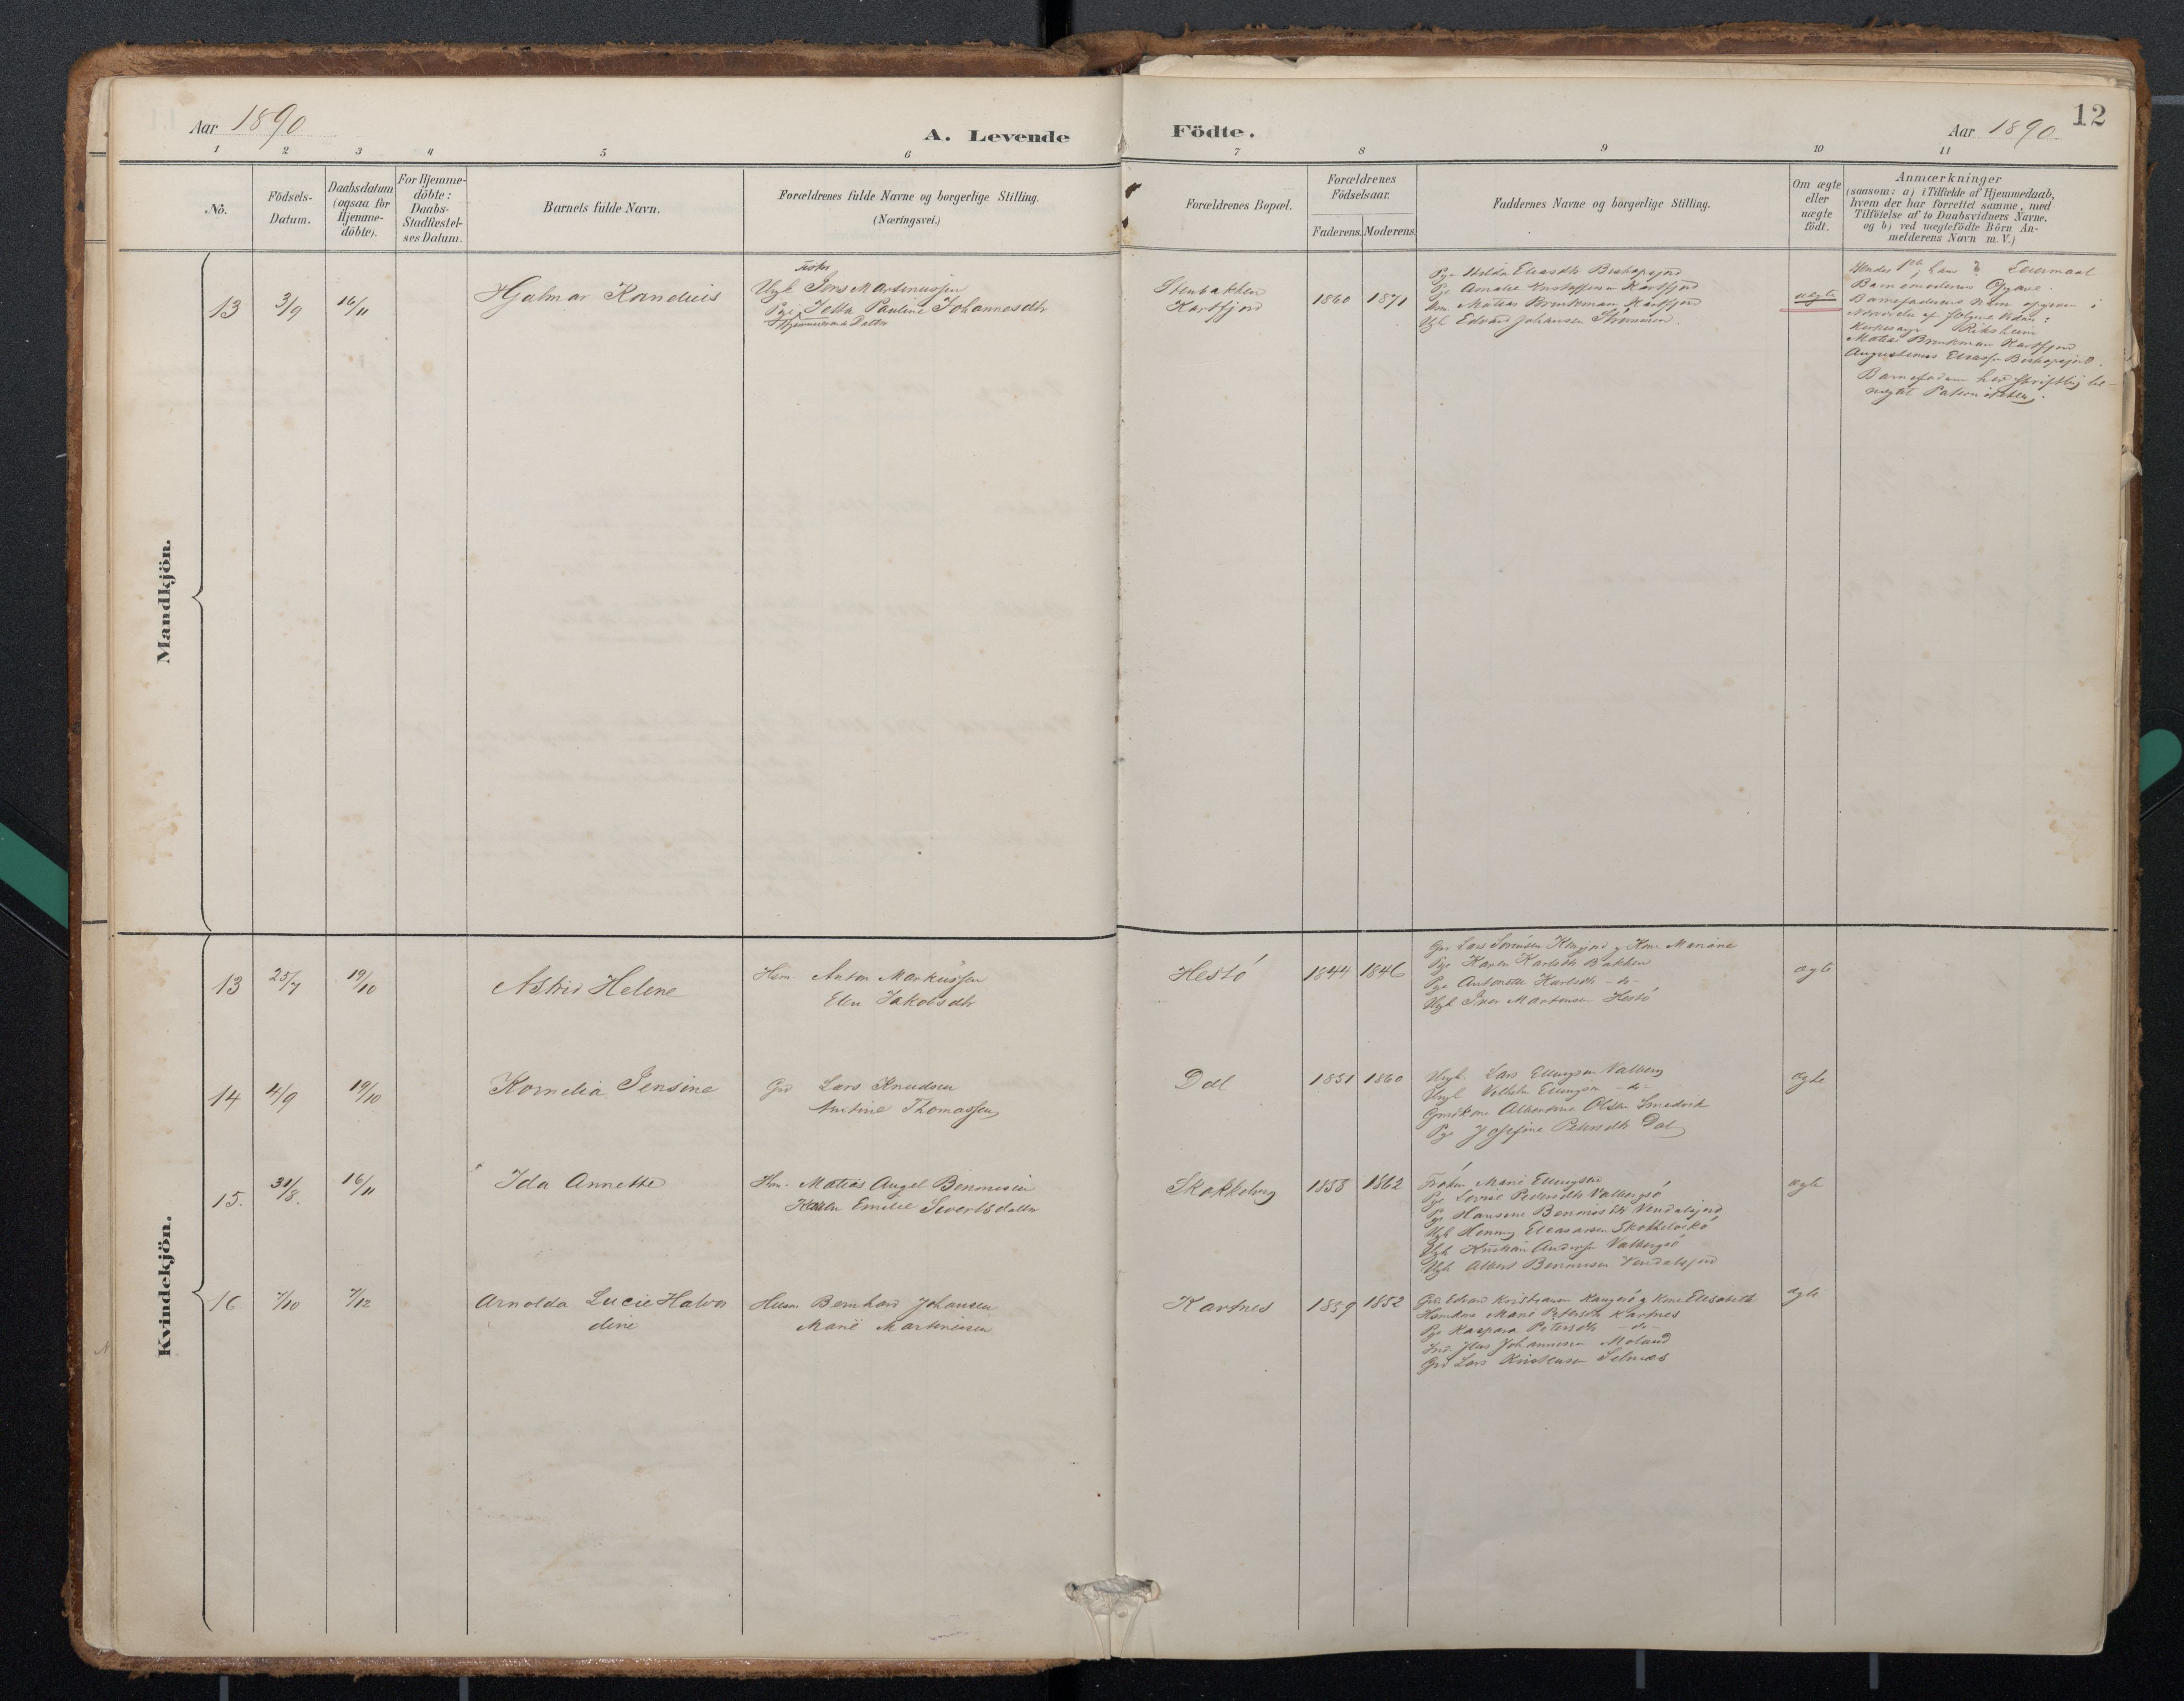 Aar 1890
A. Levende
Födte.
Aar 1890
12
1 2 3 4 5 6 7 8 9 10 11
No.
Födsels-
Datum.
Daabsdatum
(ogsaa for
Hjemme-
döbte).
For Hjemme-
döbte:
Daabs-
Stadfæstel-
ses Datum.
Barnets fulde Navn.
Forældrenes fulde Navne og borgerlige Stilling.
(Næringsvei.)
Forældrenes Bopæl.
Forældrenes
Födselsaar.
Faderens. Moderens.
Faddernes Navne og borgerlige Stilling.
Om ægte
eller
uægte
födt.
Anmærkninger
(saasom: a) i Tilfælde af Hjemmedaab,
hvem der har forrettet samme, med
Tilföielse af to Daabsvidners Navne,
og b) ved uægtefödte Börn An-
melderens Navn m. V.)
Mandkjön.
13 3/9 16/11 Hjalmar Kornelius
Ungk Jens Martinussen
Pige Jetta Pauline Johannesdtr
Hjemmeværende Datter
Stenbakken
Karsfjord
1860 1871
Pige Hilda Eliasdtr Bishopsjord
Pge Amalie Kristoffersen Karsfjord
Matias Brinkman Karsfjord
Ugk Edvard Johansen
uægte
Hendes 1ste, hans Leiermaal
Barnemoderens Opgave.
Barnefaderens Navn opgiven i
Nærværelse af følgende Vidner:
Kirkesanger
Matias Brinkman Karsfjord
Augustinus Eliassen Bishopsjord.
Barnefaderen har skriftlig be-
nægtet Paterniteten.
Kvindekjön.
13 25/7 19/10 Astrid Helene
Hsm. Anton Markussen
Elen Jakobsdtr
Hestö
1844 1846
Gr Lars Sørensen og Kone Mariane
Pge Karen Karlsdtr Bakken
Pge Antonette Karlsdtr -do-
Ungk Iver Martinsen Hestö
ægte
14 4/9 19/10 Kornelia Jensine
Grd Lars Knudsen
Antine Thomassen
Dal
1851 1860
Ungk. Lars Ellingsen Valberg
Ungk Vilhelm Ellingsen -do-
Gmdkone Albertine Olsen Smedvik
Pge Josefine Petersdtr Dal
ægte
15. 31/8. 16/11 Ida Annette
Hsm. Matias Angel Benonisen
Karen Emilie Sivertsdatter
Skokkelvig
1853 1862
Frøken Marie Ellingsen
Pge Lovise Pedersdtr Valbergsö
Pge Hansine Benonisdtr Vendalsjord
Ugk Henning Eleasarsen
Ugk Kristian Andersen Valbergsö
Ugk Albert Benonisen Vendalsjord
ægte
16 7/10 7/12 Arnolda Lucie Halvor
dine
Husm Bernhard Johansen
Marie Martinusen
Karsnes
1859 1852
Grd. Edvard Kristiansen og Kone Elisabeth
Hsmkone Marie Petersdtr Karsnes
Pge Kaspara Petersdtr -do-
Johannesen Moland
Grd Lars Kristensen Selnæs
ægte